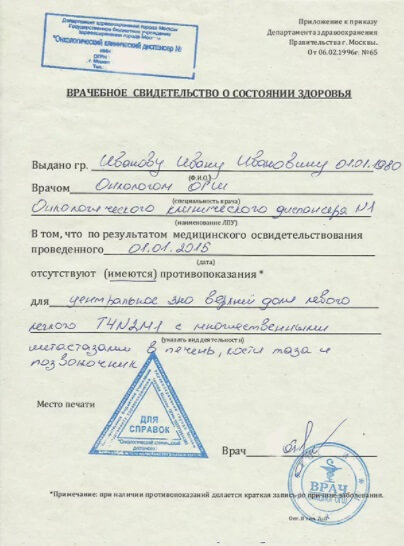 Департамент здравоохранения города Москвы
Государственное бюджетное учреждение
здравоохранения города Москвы
"Онкологический клинический диспансер №
ИНН
ОГРН
г. Москва
Тел.
Приложение к приказу
Департамента здравоохранения
Правительства г. Москвы.
От 06.02.1996г. №65
ВРАЧЕБНОЕ СВИДЕТЕЛЬСТВО О СОСТОЯНИИ ЗДОРОВЬЯ
Выдано гр. Иванову Ивану Ивановичу 01.01.1980
(Ф.И.О.)
Врачом Онкологом ОГШ
(специальность врача)
Онкологического клинического диспансера №1
(наименование ЛПУ)
В том, что по результатом медицинского освидетельствования
проведенного 01.01.2015
(дата)
отсутствуют (имеются) противопоказания *
для центральное зно верхней доли левого
легкого T4N2M1 с множественными
(указать вид деятельности)
метастазами в печень, кости таза и
позвоночник
Место печати
ДЛЯ
СПРАВОК
"Онкологический клинический
диспансер
Врач
ВРАЧ
*Примечание: при наличии противопоказаний делается краткая запись по причине заболевания.